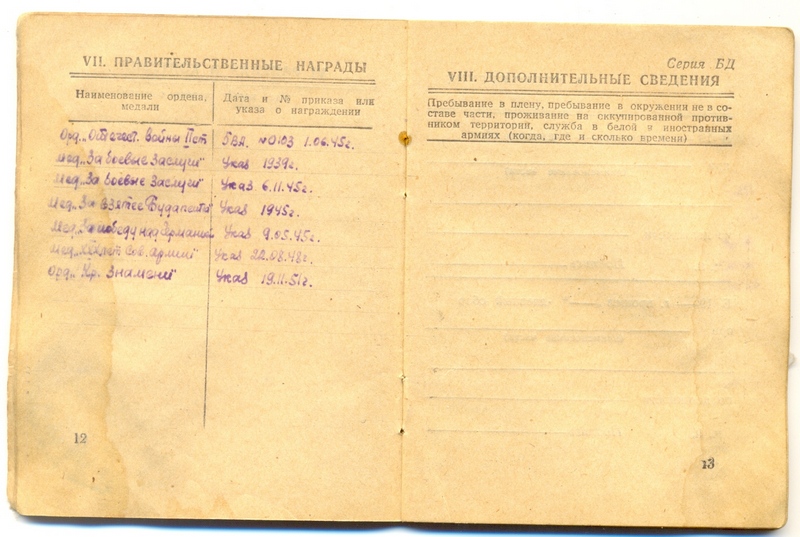 VII. ПРАВИТЕЛЬСТВЕННЫЕ НАГРАДЫ
Наименование ордена, медали
Дата и № приказа или указа о награждении
Орд. „Отечест. Войны II ст
5 ВА. №0103 1.06.45г.
Мед. „За боевые Заслуги"
Указ 1939г.
Мед. „За боевые Заслуги"
Указ 6.11.45г.
Мед. „За Взятие Будапешта"
Указ 1945г.
Мед. „За победу над Германией
Указ 9.05.45г.
Мед. Сов. Армии"
Указ 22.08.48г.
Орд. „Кр. Знамени"
Указ 19.11.51г.
12
Серия БД
VIII. ДОПОЛНИТЕЛЬНЫЕ СВЕДЕНИЯ
Пребывание в плену, пребывание в окружении не в со-
ставе части, проживание на оккупированной против-
ником территории, служба в белой и иностранных
армиях (когда, где и сколько времени)
13